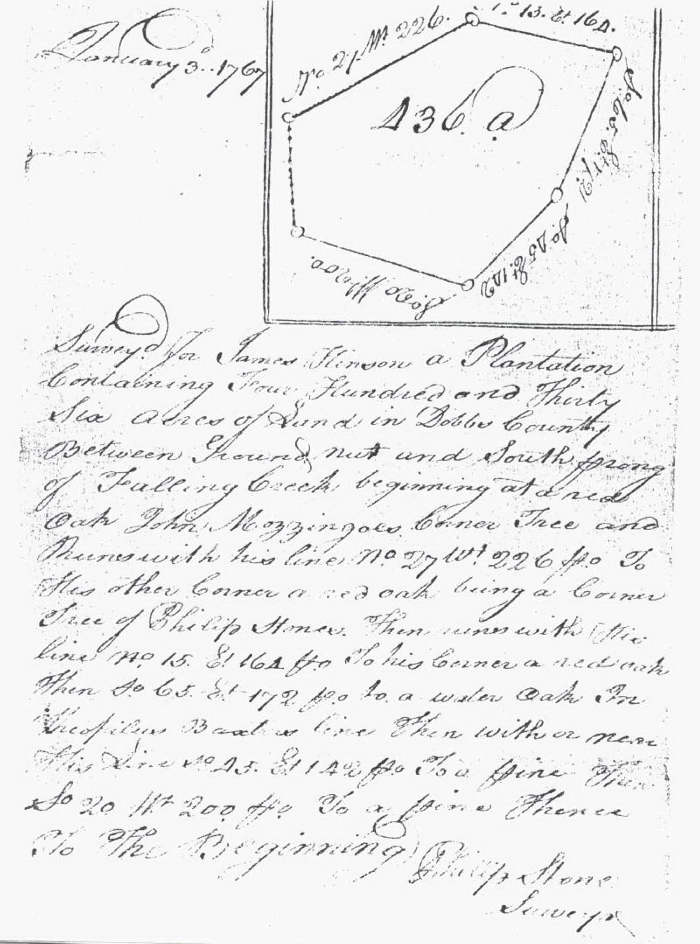 January 3d. 1767
No. 27 Wt. 226.
No. 15. Et. 164.
So. 65. Et. 172
So. 45 Et. 142
So. 20 Wt. 200.
436. a
Survey'd for James Hinson a Plantation
Containing Four Hundred and Thirty
Six Acres of Land in Dobbs County
Between Ground nut and South prong
of Falling Creek beginning at a red
Oak John Mozzingoes Corner Tree and
Runs with his line No. 27 Wt. 226 po To
His other Corner a red oak being a Corner
Tree of Philip Stones. Then runs with His
line No 15. Et 164 po To his Corner a red oak
Then So 65. Et 172 po to a water Oak In
line Then with or near
His Line So 45. Et 142 po To a pine Then
So 20 Wt 200 po To a pine Thence
To The Beginning
Philip Stone
Surveyr